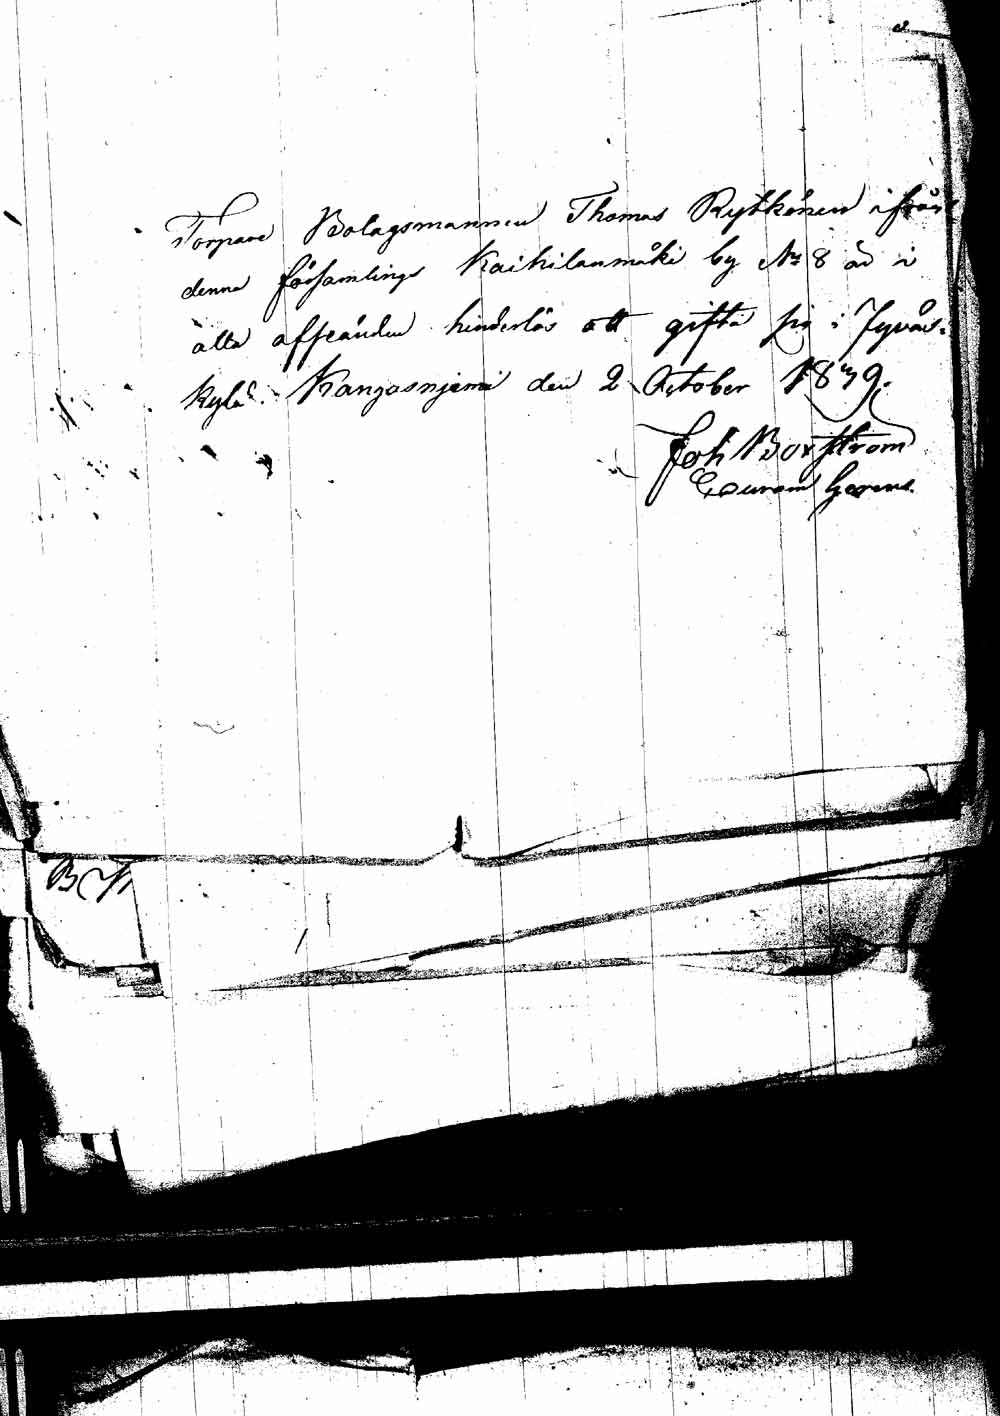 Torpare Bolagsmannen Thomas Rytkönen ifrån
denna församlings Kaihilanmäki by № 8 är i
alla afseänden hinderlös att gifta sig i Jyväs-
kylä. Kangasnjemi den 2 October 1839.
Joh Borgström
Curam Gerens.